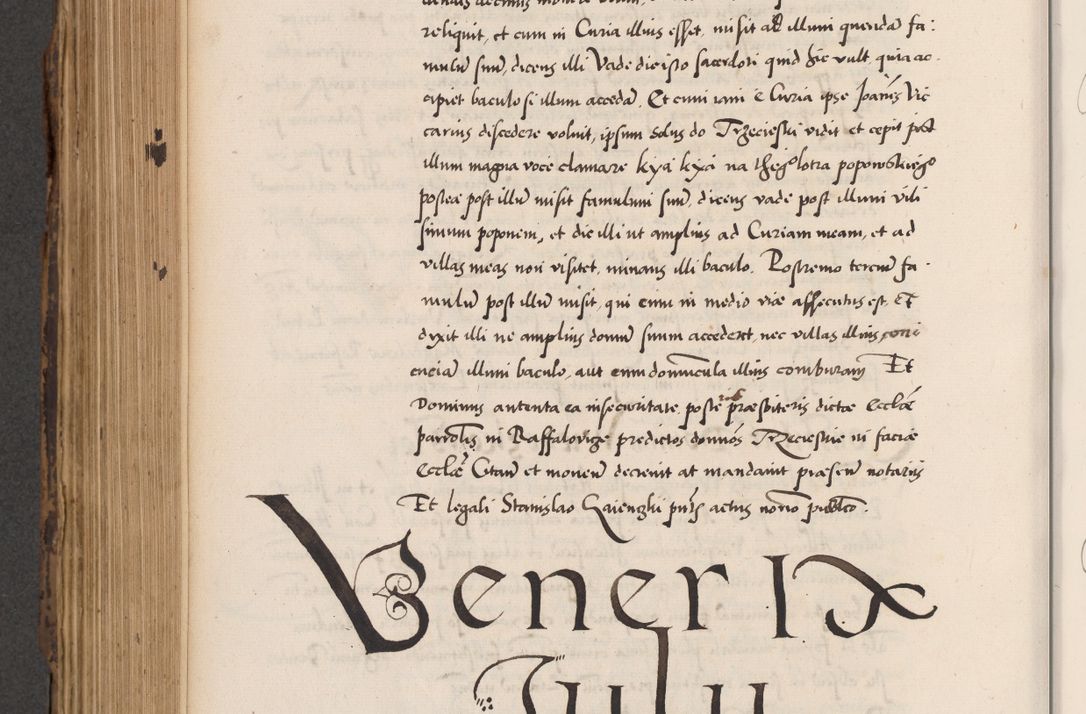 reliquit, et cum in Curia illius esset, misit ad illum quendam fa:
mulum suum, dicens illi Vade dic isto sacerdoti quid hic vult, quia ac
cipiet baculo si illum accedam. Et cum iam e Curia ipse Joannes Vic
carius discedere voluit, ipsum solus do Trzecieski vidit et cepit post
illum magna voce clamare kya kyia na thego lotra poponoskiego
postea post illum misit famulum suum, dicens vade post illum vili
simum poponem, et dic illi ut amplius ad Curiam meam, et ad
villas meas non visitet, minans illi baculo. Postremo tercium fa.
mulum post illum misit, qui eum in medio viae assecutus est, Et
dixit illi ne amplius domum suum accederet, nec villas illius,
enciam illum baculo, aut eum domuncula illius comburam Et
Dominus attenta ea insecuritate poste praesbiteris dictae Ecclae
parrolis in Raffalovicze predictos dominos Trzecieskie in faciae
Ecclae Citand et monend decrevit at mandavit praesen notariis
Et legali Stanislao pntis actus norio publco.
Veneris
Julii